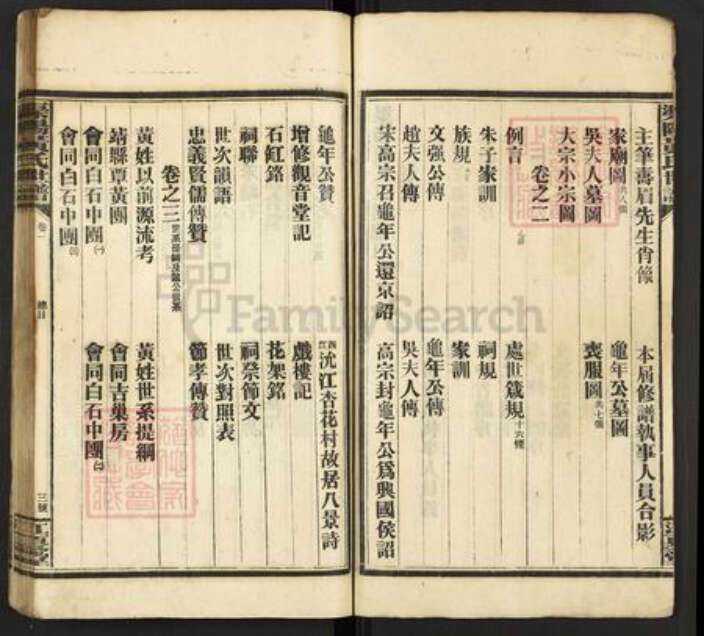 主筆壽眉先生肖像　本届修譜執事人員合影
家廟圖共八個　龜年公墓圖
吳夫人墓圖　喪服圖共七個
大宗小宗圖
卷之二
例言　處世箴規十六條
朱子家訓　祠規
族規　家訓
文強公傳　龜年公傳
趙夫人傳　吳夫人傳
宋高宗召龜年公還京詔　高宗封龜年公爲興國侯詔
龜年公贊　四江沈江杏花村故居八景詩
增修觀音堂記　戲樓記
石缸銘　花架銘
祠聯　祠祭節文
世次韻語　世次對照表
忠義賢儒傳贊　節孝傳贊
卷之三
黃姓以前源流考　黃姓世系提綱
靖縣覃黃團　會同吉巢房
會同白石中團㈠　會同白石中團㈡
會同白石中團㈢
卷一
總目
三號
FamilySearch